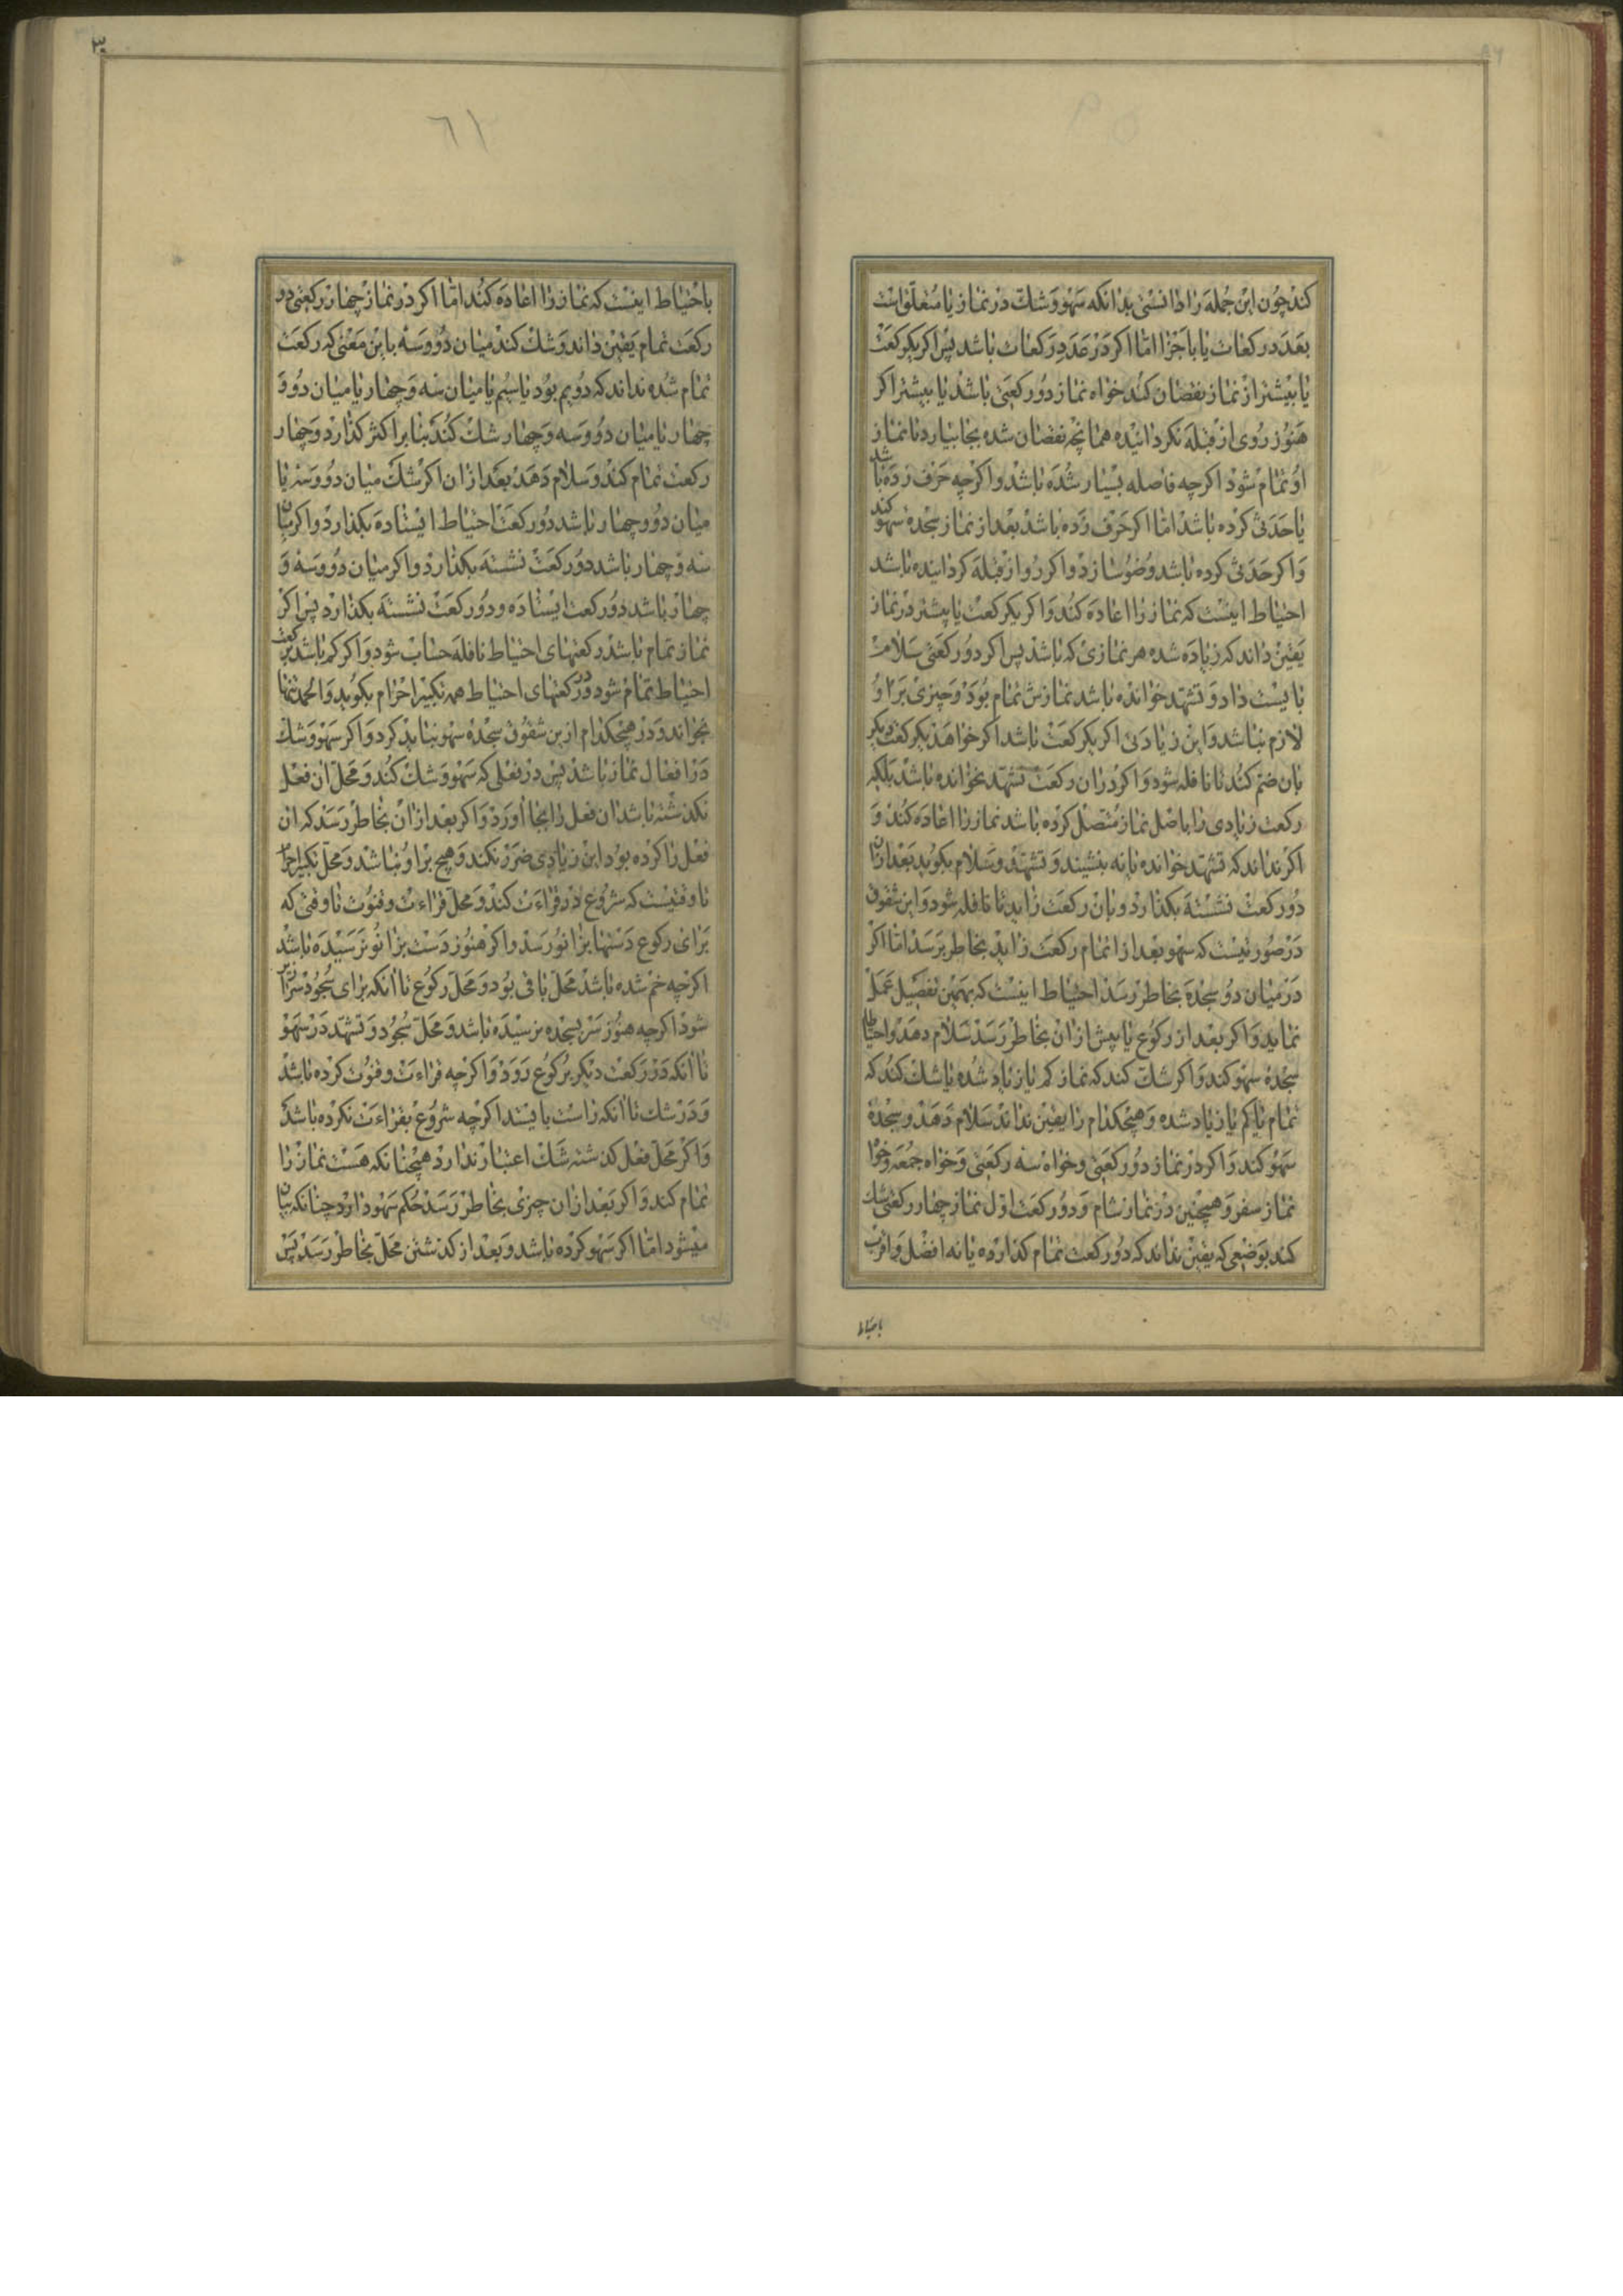 کند چون این جمله را دانستی بدانکه سهو و شک در نماز یا متعلق است
بعدد رکعات یا باجزا اما اگر در عدد رکعات باشد پس اگر یکرکعت
یا بیشتر از نماز نقصان کند خواه نماز دورکعتی باشد یا بیشتر اگر
هنوز روی از قبله نگردانیده همانچه نقصان شده بجا بیارد تا نماز
او تمام شود اگرچه فاصله بسیار شده باشد و اگرچه حرف زده باشد
یا حدثی کرده باشد اما اگر حرف زده باشد بعد از نماز سجده سهو کند
و اگر حدثی کرده باشد وضو سازد و اگر رو از قبله گردانیده باشد
احتیاط اینست که نماز را اعاده کند و اگر یکرکعت یا بیشتر در نماز
یقین داند که زیاده شده هر نمازی که باشد پس اگر دورکعتی سلامت
بایست داد و تشهد خوانده باشد نمازش تمام بود و چیزی بر او
لازم نباشد و این زیادتی اگر یکرکعت باشد اگر خواهد یکرکعت دیگر
بان ضم کند تا نافله شود و اگر در ان رکعت تشهد نخوانده باشد بلکه
رکعت زیادی را باصل نماز متصل کرده باشد نماز را اعاده کند و
اگر نداند که تشهد خوانده یا نه بنشیند و تشهد و سلام بگوید بعد ازان
دورکعت نشسته بگذارد و بان رکعت زاید تا نافله شود و این شقوق
در صورتیست که سهو بعد از اتمام رکعت زاید بخاطر برسد اما اگر
در میان دو سجده بخاطر رسد احتیاط اینست که بهمین تفصیل عمل
نماید و اگر بعد از رکوع یا پیش ازان بخاطر رسد سلام دهد و احتیاطا
سجده سهو کند و اگر شک کند که نماز کم یا زیاد شده یا شک کند که
تمام یا کم یا زیاد شده و هیچکدام را یقین نداند سلام دهد و سجده
سهو کند و اگر در نماز دورکعتی و خواه سه رکعتی و خواه جمعه و خواه
نماز سفر و همچنین در نماز شام و دورکعت اول نماز چهار رکعتی شک
کند بوضعی که یقین نداند که دورکعت تمام گذارده یا نه افضل و اقرب
باحتیاط
باحتیاط اینست که نماز را اعاده کند اما اگر در نماز چهار رکعتی دو
رکعت تمام یقین داند و شک کند میان دو و سه باین معنی که رکعت
تمام شده نداند که دویم بود یا سیم یا میان سه و چهار یا میان دو و
چهار یا میان دو و سه و چهار شک کند بنا بر اکثر گذارد و چهار
رکعت تمام کند و سلام دهد بعد ازان اگر شک میان دو و سه یا
میان دو و چهار باشد دورکعت احتیاط ایستاده بگذارد و اگر میان
سه و چهار باشد دورکعت نشسته بگذارد و اگر میان دو و سه و
چهار باشد دورکعت ایستاده و دورکعت نشسته بگذارد پس اگر
نماز تمام باشد رکعتهای احتیاط نافله حساب شود و اگر کم باشد برکعت
احتیاط تمام شود و در رکعتهای احتیاط همه تکبیر احرام بگوید و الحمد تنها
بخواند و در هیچکدام ازین شقوق سجده سهو نباید کرد و اگر سهو و شک
در افعال نماز باشد پس در فعلی که سهو و شک کند و محل ان فعل
نگذشته باشد ان فعل را بجا اورد و اگر بعد ازان بخاطر رسد که ان
فعل را کرده بود این زیادی ضرر نکند و هیچ بر او نباشد و محل تکبیر احرام
تا وقتیست که شروع در قراءت کند و محل قراءت و قنوت تا وقتی که
برای رکوع دستها بزانو رسد و اگر هنوز دست بزانو نرسیده باشد
اگرچه خم شده باشد محل باقی بود و محل رکوع تا انکه برای سجود سرازیر
شود اگرچه هنوز سر بسجده نرسیده باشد و محل سجود و تشهد در سهو
تا انکه در رکعت دیگر برکوع رود و اگرچه قراءت و قنوت کرده باشد
و در شک تا انکه راست بایستد اگرچه شروع بقراءت نکرده باشد
و اگر محل فعل گذشته شک اعتبار ندارد همچنانکه هست نماز را
تمام کند و اگر بعد ازان چیزی بخاطر رسد حکم سهو دارد چنانکه بیان
میشود اما اگر سهو کرده باشد و بعد از گذشتن محل بخاطر رسد پس